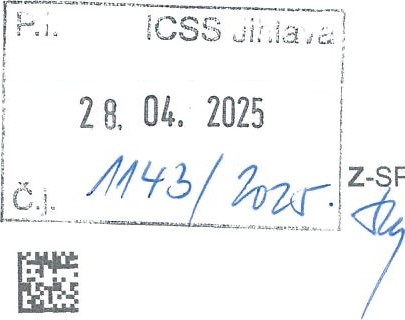 P.i. ICSS Jihlava
28. 04. 2025
Č.j. 1143/2025.
Z-SP